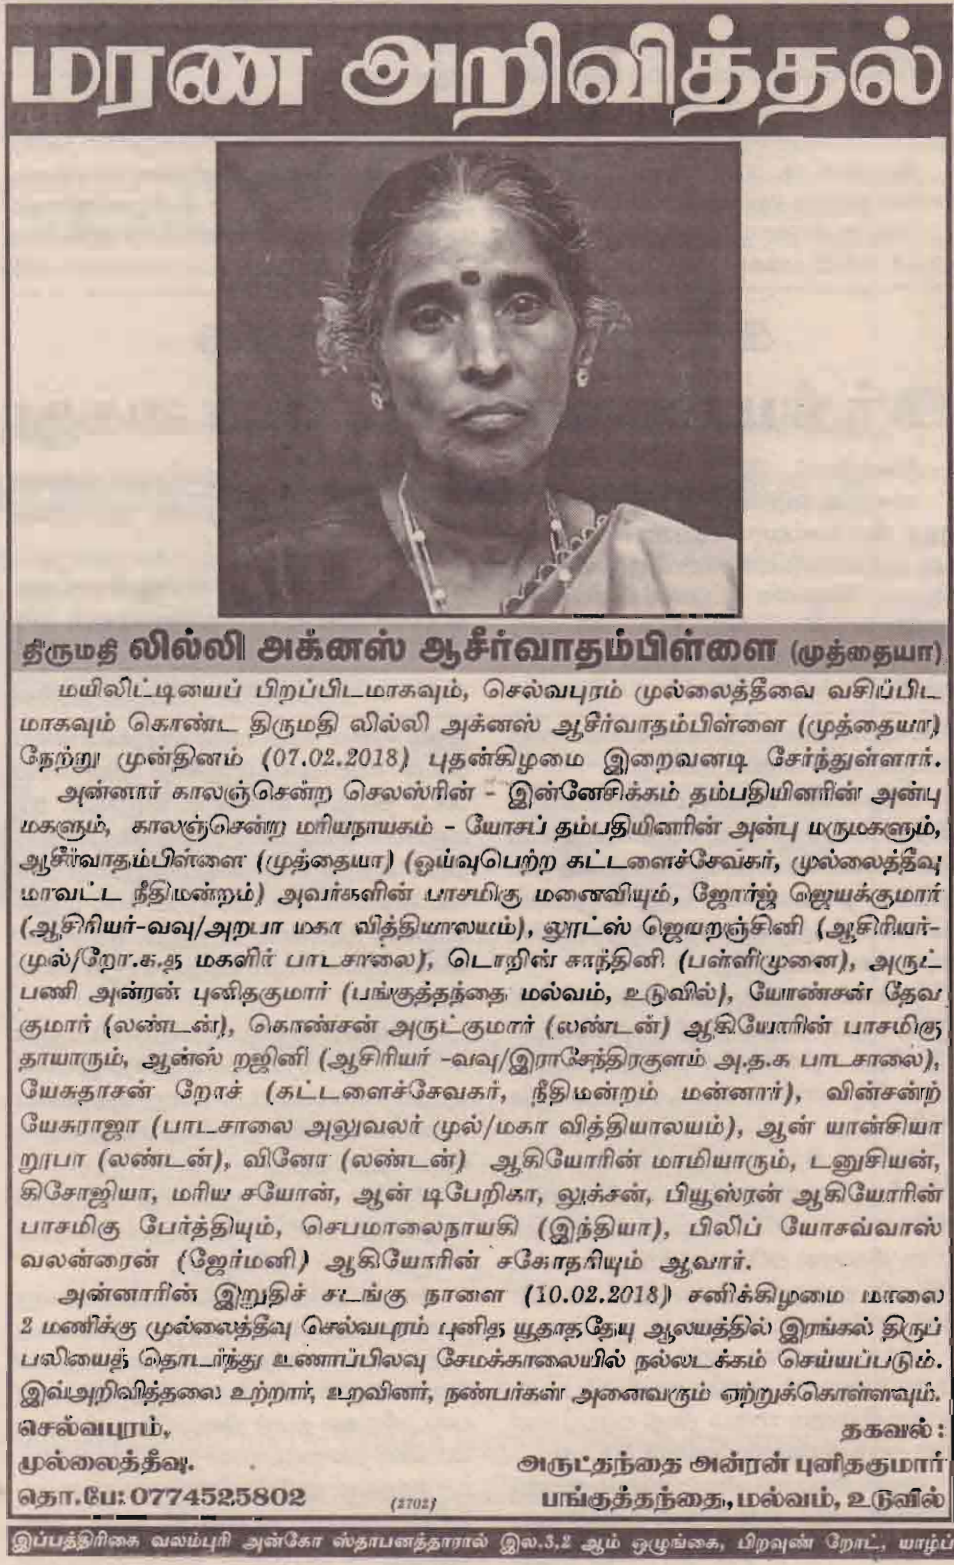 மரண அறிவித்தல்
திருமதி லில்லி அக்னஸ் ஆசீர்வாதம்பிள்ளை (முத்தையா)
மயிலிட்டியைப் பிறப்பிடமாகவும், செல்வபுரம் முல்லைத்தீவை வசிப்பிட
மாகவும் கொண்ட திருமதி லில்லி அக்னஸ் ஆசீர்வாதம்பிள்ளை (முத்தையா)
நேற்று முன்தினம் (07.02.2018) புதன்கிழமை இறைவனடி சேர்ந்துள்ளார்.
அன்னார் காலஞ்சென்ற செலஸ்ரின் - இன்னேசிக்கம் தம்பதியினரின் அன்பு
மகளும், காலஞ்சென்ற மரியநாயகம் - யோசப் தம்பதியினரின் அன்பு மருமகளும்,
ஆசீர்வாதம்பிள்ளை (முத்தையா) (ஓய்வுபெற்ற கட்டளைச்சேவகர், முல்லைத்தீவு
மாவட்ட நீதிமன்றம்) அவர்களின் பாசமிகு மனைவியும், ஜோர்ஜ் ஜெயக்குமார்
(ஆசிரியர்-வவு/அறபா மகா வித்தியாலயம்), லூட்ஸ் ஜெயறஞ்சினி (ஆசிரியர்-
முல்/றோ.க.த மகளிர் பாடசாலை), டொறின் சாந்தினி (பள்ளிமுனை), அருட்
பணி அன்ரன் புனிதகுமார் (பங்குத்தந்தை மல்வம், உடுவில்), யோண்சன் தேவ
குமார் (லண்டன்), கொண்சன் அருட்குமார் (லண்டன்) ஆகியோரின் பாசமிகு
தாயாரும், ஆன்ஸ் றஜினி (ஆசிரியர் -வவு/இராசேந்திரகுளம் அ.த.க பாடசாலை),
யேசுதாசன் றோச் (கட்டளைச்சேவகர், நீதிமன்றம் மன்னார்), வின்சன்ற்
யேசுராஜா (பாடசாலை அலுவலர் முல்/மகா வித்தியாலயம்), ஆன் யான்சியா
றூபா (லண்டன்), வினோ (லண்டன்) ஆகியோரின் மாமியாரும், டனுசியன்,
கிசோஜியா, மரிய சயோன், ஆன் டிபேறிகா, லுக்சன், பியூஸ்ரன் ஆகியோரின்
பாசமிகு பேர்த்தியும், செபமாலைநாயகி (இந்தியா), பிலிப் யோசவ்வாஸ்
வலன்ரைன் (ஜேர்மனி) ஆகியோரின் சகோதரியும் ஆவார்.
அன்னாரின் இறுதிச் சடங்கு நாளை (10.02.2018) சனிக்கிழமை மாலை
2 மணிக்கு முல்லைத்தீவு செல்வபுரம் புனித யூதாததேயு ஆலயத்தில் இரங்கல் திருப்
பலியைத் தொடர்ந்து உணாப்பிலவு சேமக்காலையில் நல்லடக்கம் செய்யப்படும்.
இவ்அறிவித்தலை உற்றார், உறவினர், நண்பர்கள் அனைவரும் ஏற்றுக்கொள்ளவும்.
செல்வபுரம்,
முல்லைத்தீவு.
தொ.பே: 0774525802
(2702)
தகவல் :
அருட்தந்தை அன்ரன் புனிதகுமார்
பங்குத்தந்தை, மல்வம், உடுவில்
இப்பத்திரிகை வலம்புரி அன்கோ ஸ்தாபனத்தாரால் இல.3,2 ஆம் ஒழுங்கை, பிறவுண் றோட், யாழ்ப்